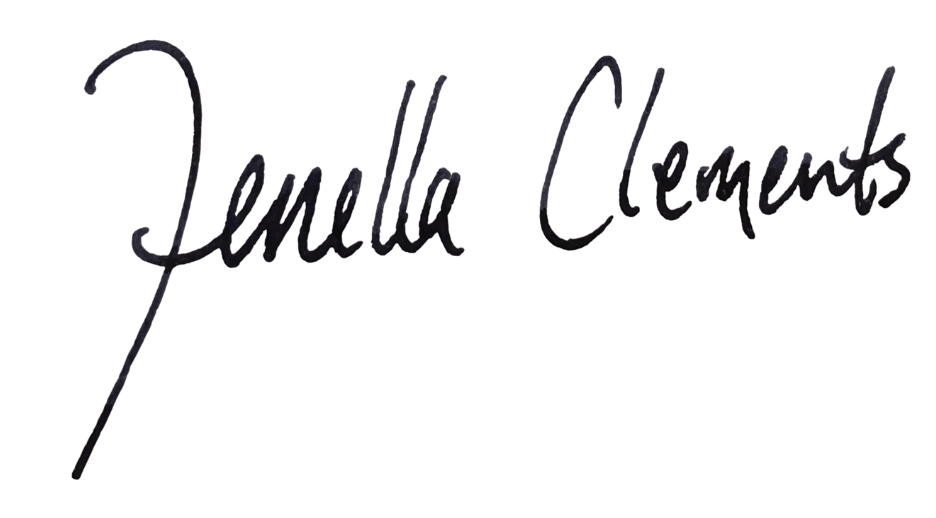 Fenella Clements